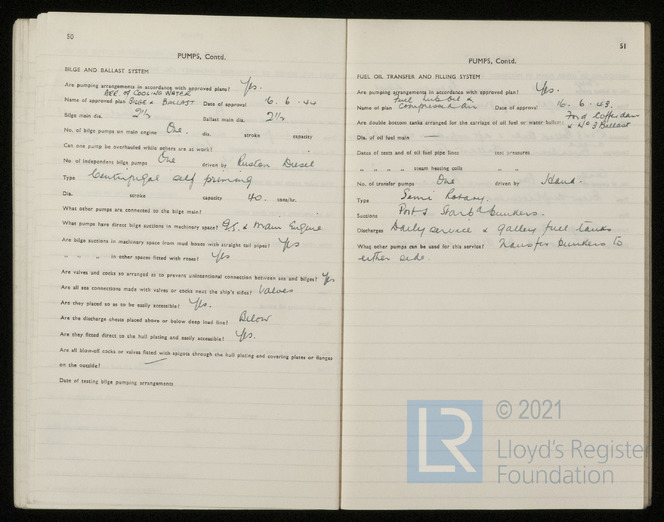 50
PUMPS, Contd.
BILGE AND BALLAST SYSTEM
Are pumping arrangements in accordance with approved plans? Yes.
ARR. OF COOLING WATER
Name of approved plan BILGE & BALLAST Date of approval 6. 6. 44
Bilge main dia. 2½ Ballast main dia. 2½
No. of bilge pumps on main engine One. dia. stroke capacity
Can one pump be overhauled while others are at work?
No. of independent bilge pumps One driven by Ruston Diesel
Type Centrifugal self priming
Dia. stroke capacity 40. tons/hr.
What other pumps are connected to the bilge main?
What pumps have direct bilge suctions in machinery space? G/S. & Main Engine
Are bilge suctions in machinery space from mud boxes with straight tail pipes? Yes
" " " in other spaces fitted with roses? Yes
Are valves and cocks so arranged as to prevent unintentional connection between sea and bilges? Yes
Are all sea connections made with valves or cocks next the ship's sides? Valves
Are they placed so as to be easily accessible? Yes.
Are the discharge chests placed above or below deep load line? Below
Are they fitted direct to the hull plating and easily accessible? Yes.
Are all blow-off cocks or valves fitted with spigots through the hull plating and covering plates or flanges
on the outside? —
Date of testing bilge pumping arrangements
51
PUMPS, Contd.
FUEL OIL TRANSFER AND FILLING SYSTEM
Are pumping arrangements in accordance with approved plan? Yes.
Fuel lub oil &
Name of plan Compressed air Date of approval 16. 6. 43.
Ford Cofferdam
Are double bottom tanks arranged for the carriage of oil fuel or water ballast? & No 3 Ballast
Dia. of oil fuel main —
Dates of tests and of oil fuel pipe lines test pressures
" " " " steam heating coils " "
No. of transfer pumps One driven by Hand.
Type Semi Rotary.
Suctions Port & Starbd bunkers.
Discharges Daily service & Galley fuel tanks
What other pumps can be used for this service? Transfer bunkers to
either side.
LR
© 2021
Lloyd's Register
Foundation